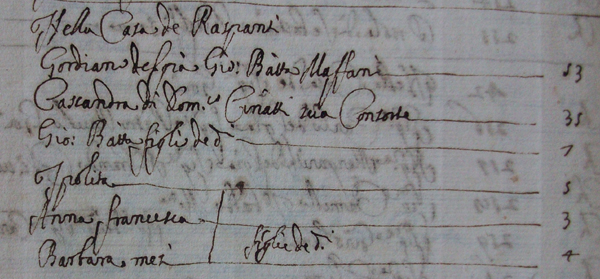 Nella Casa de Raspanti
Gordiano del già Gio: Batta Maffani 53
Cassandra di Dom.co sua Consorte 35
Gio: Batta figlio de di 7
Ipolita 5
Anna Francesca 3
Barbara mesi figlie de di 4